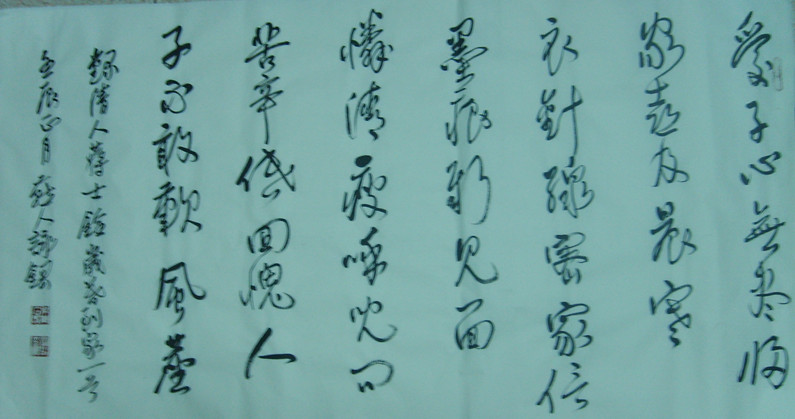 愛子心無盡歸
家喜及晨寒
衣針線密家信
墨痕新見面
憐清瘦呼兒問
苦辛低回愧人
子不敢歎風塵
錄清人蔣士銓歲暮到家一首
壬辰正月